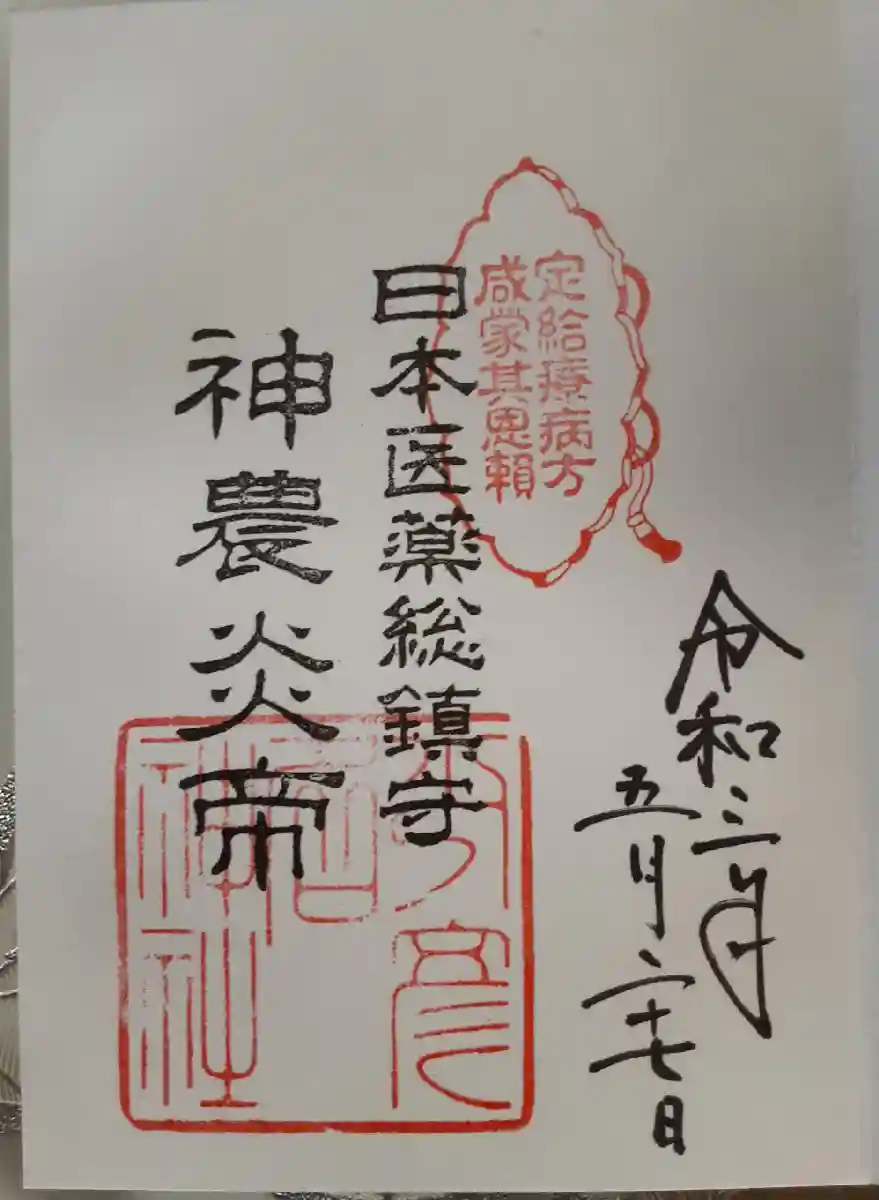 令和三年
五月二十七日
定給療病方
咸蒙其恩賴
日本医薬総鎮守
神農炎帝
少彦名神社